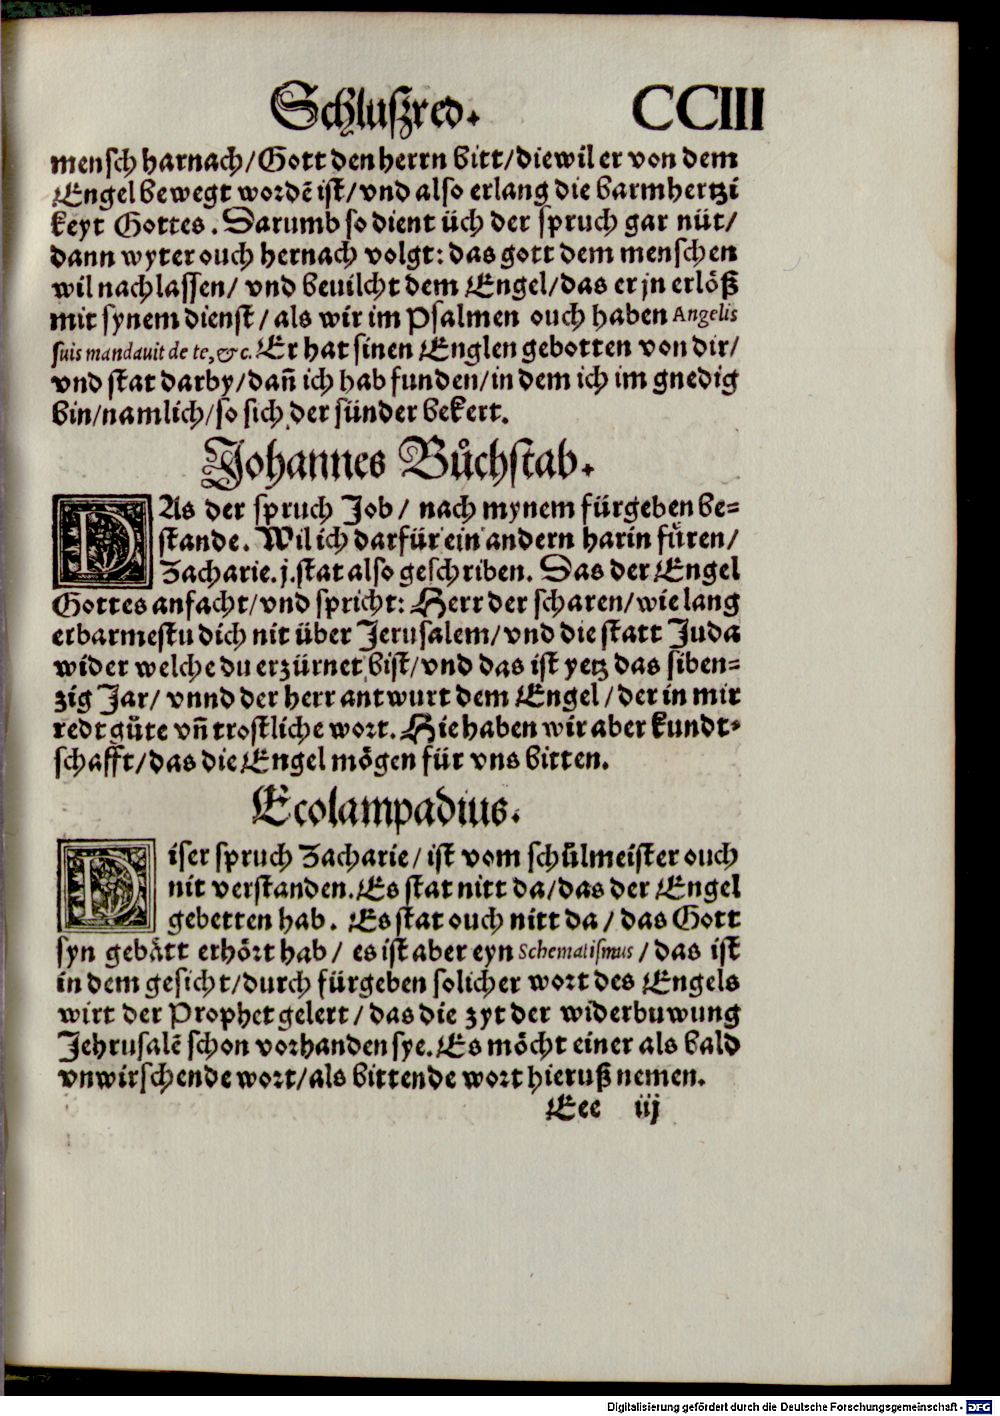 Schluſzred. CCIII
menſch harnach/Gott den herrn bitt/diewil er von dem
Engel bewegt wordē iſt/vnd alſo erlang die barmhertzi
keyt Gottes. Darumb ſo dient üch der ſpruch gar nüt/
dann wyter ouch hernach volgt: das gott dem menſchen
wil nachlaſſen/ vnd beuilcht dem Engel/das er jn erlöß
mit ſynem dienſt/als wir im Pſalmen ouch haben Angelis
ſuis mandauit de te,&c. Er hat ſinen Englen gebotten von dir/
vnd ſtat darby/dañ ich hab funden/in dem ich im gnedig
bin/namlich/ſo ſich der ſünder bekert.
Johannes Bůchſtab.
DAs der ſpruch Job/ nach mynem fürgeben be=
ſtande. Wil ich darfür ein andern harin fůren/
Zacharie.j.ſtat alſo geſchriben. Das der Engel
Gottes anfacht/vnd ſpricht: Herr der ſcharen/wie lang
erbarmeſtu dich nit über Jeruſalem/vnd die ſtatt Juda
wider welche du erzürnet biſt/vnd das iſt yetz das ſiben=
zig Jar/ vnnd der herr antwurt dem Engel/der in mir
redt gůte vñ troſtliche wort. Hie haben wir aber kundt=
ſchafft/das die Engel mögen für vns bitten.
Ecolampadius.
Diſer ſpruch Zacharie/iſt vom ſchůlmeiſter ouch
nit verſtanden. Es ſtat nitt da/das der Engel
gebetten hab. Es ſtat ouch nitt da/ das Gott
ſyn gebätt erhört hab/ es iſt aber eyn Schematiſmus/das iſt
in dem geſicht/durch fürgeben ſolicher wort des Engels
wirt der Prophet gelert/das die zyt der widerbuwung
Jehruſalē ſchon vorhanden ſye. Es möcht einer als bald
vnwirſchende wort/als bittende wort hieruß nemen.
Eee iij
Digitalisierung gefördert durch die Deutsche Forschungsgemeinschaft - DFG